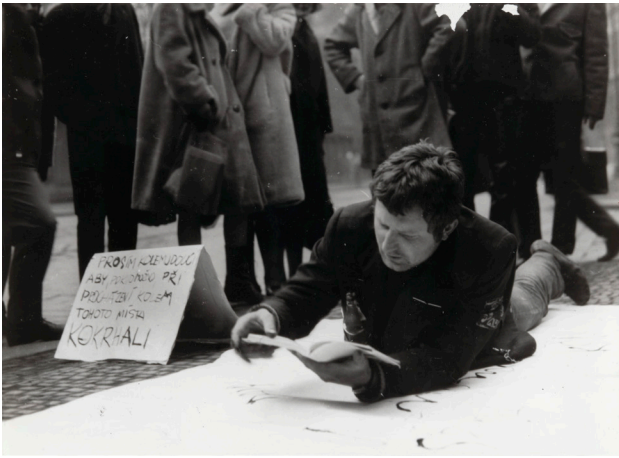 PROSÍM KOLEMJDOUCÍ
ABY POKUDMOŽNO PŘI
PROCHÁZENÍ KOLEM
TOHOTO MÍSTA
KOKRHALI